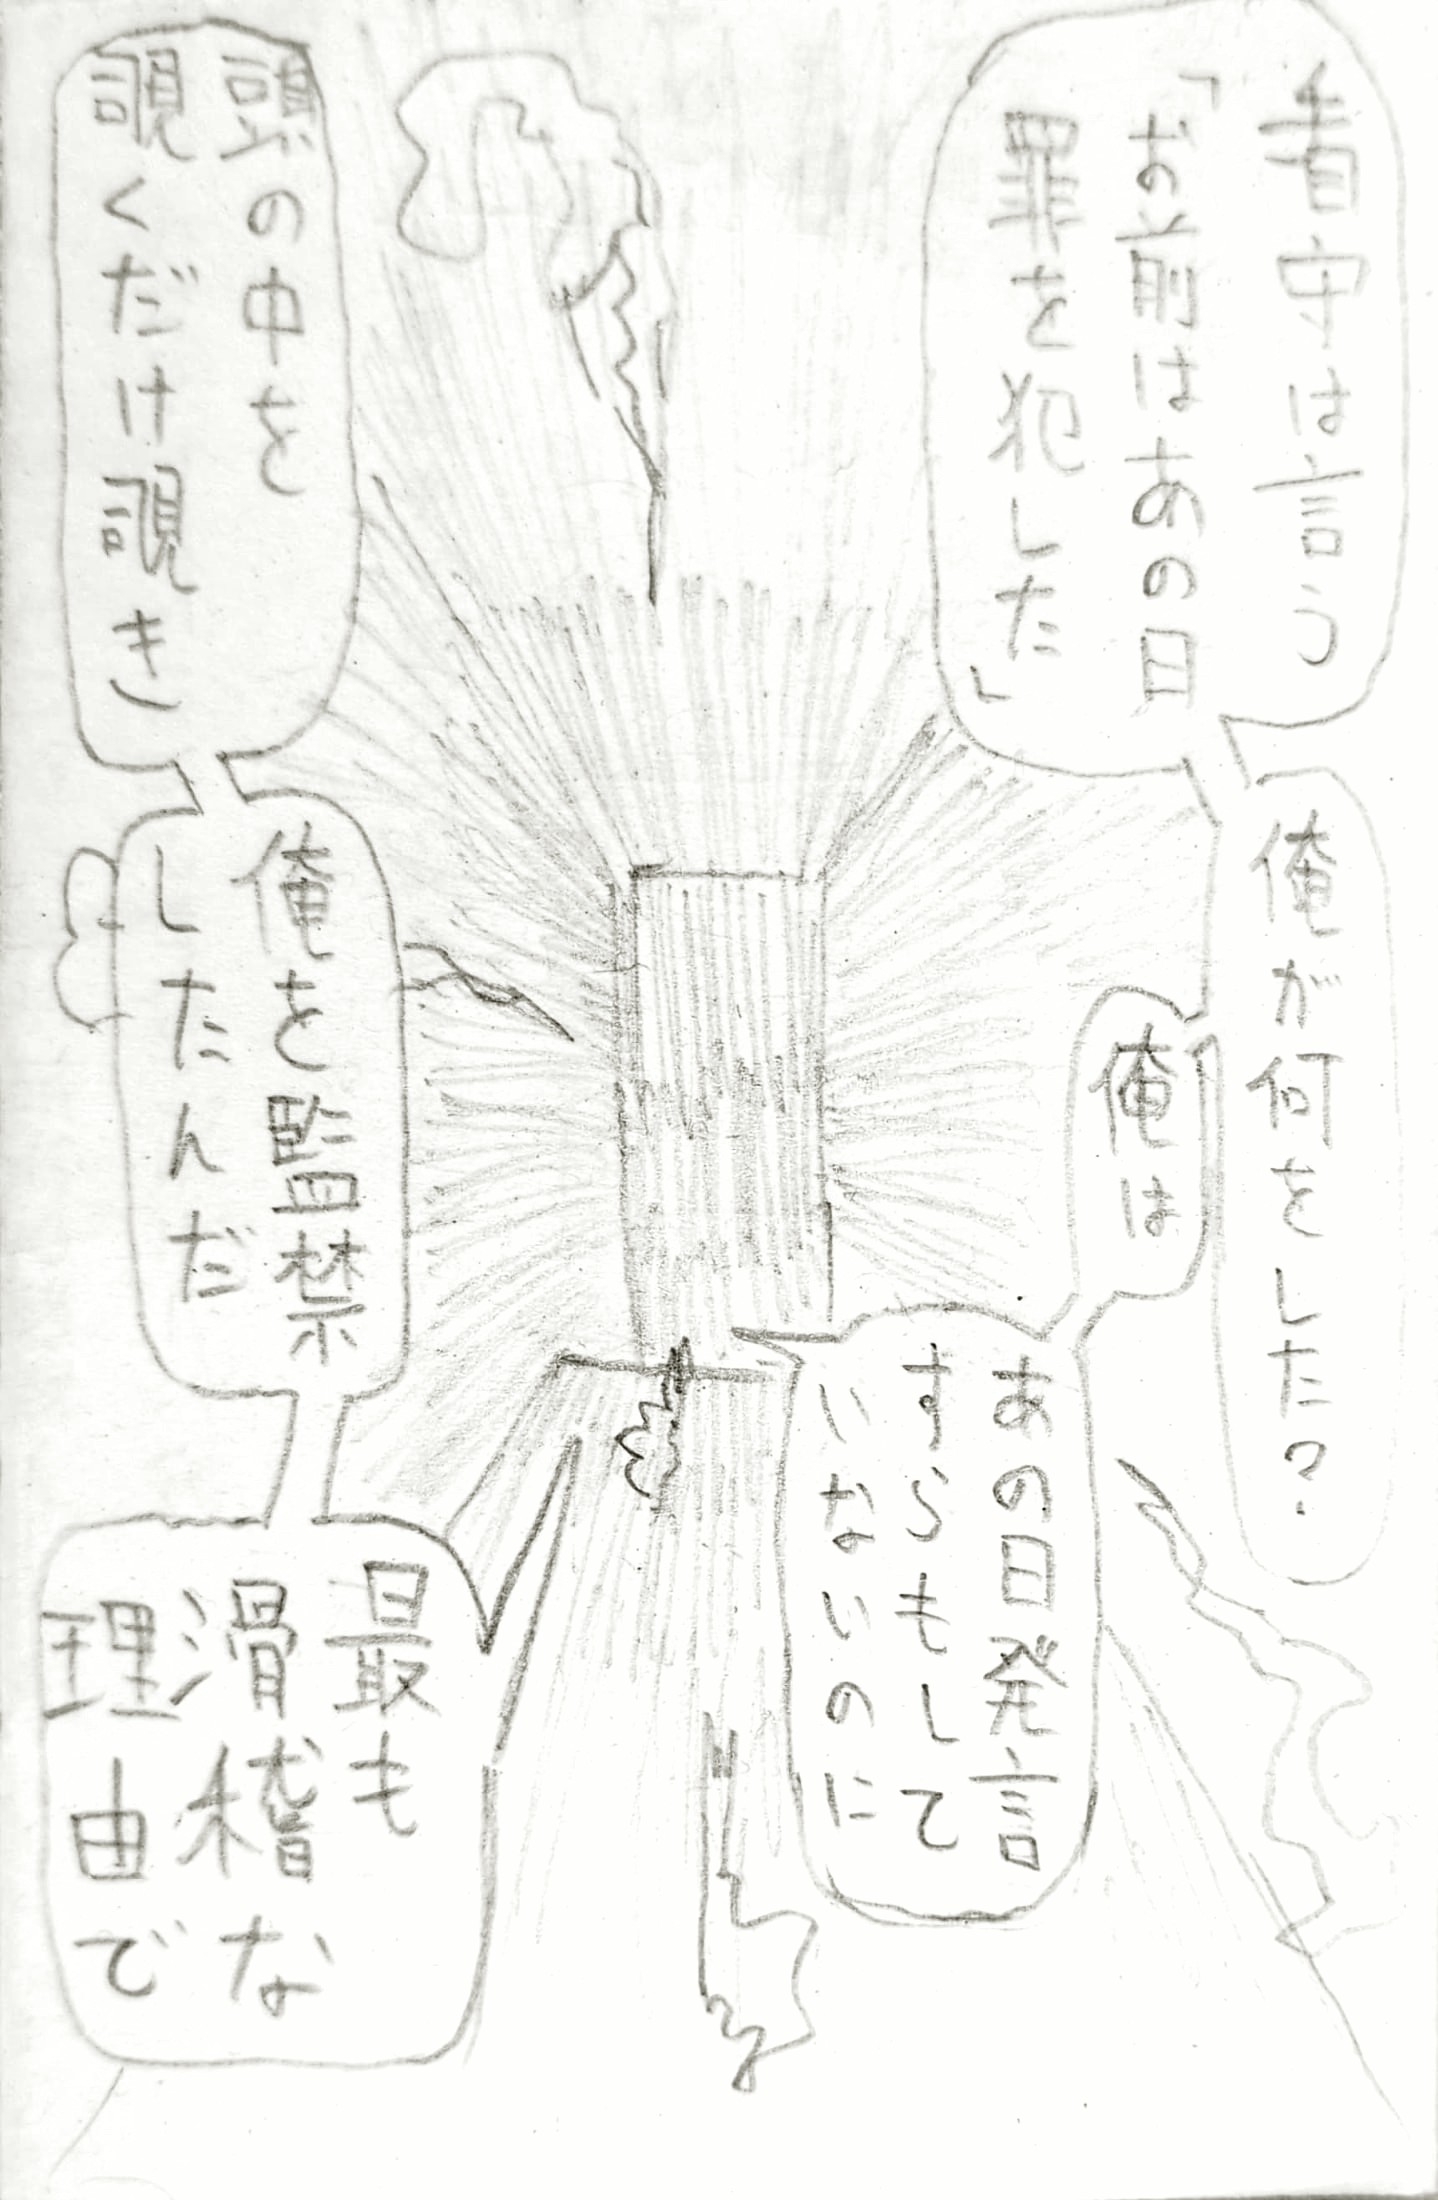 看守は言う
「お前はあの日
罪を犯した」
俺が何をした?
俺は
あの日発言
すらもして
いないのに
頭の中を
覗くだけ覗き
俺を監禁
したんだ
最も
滑稽な
理由で